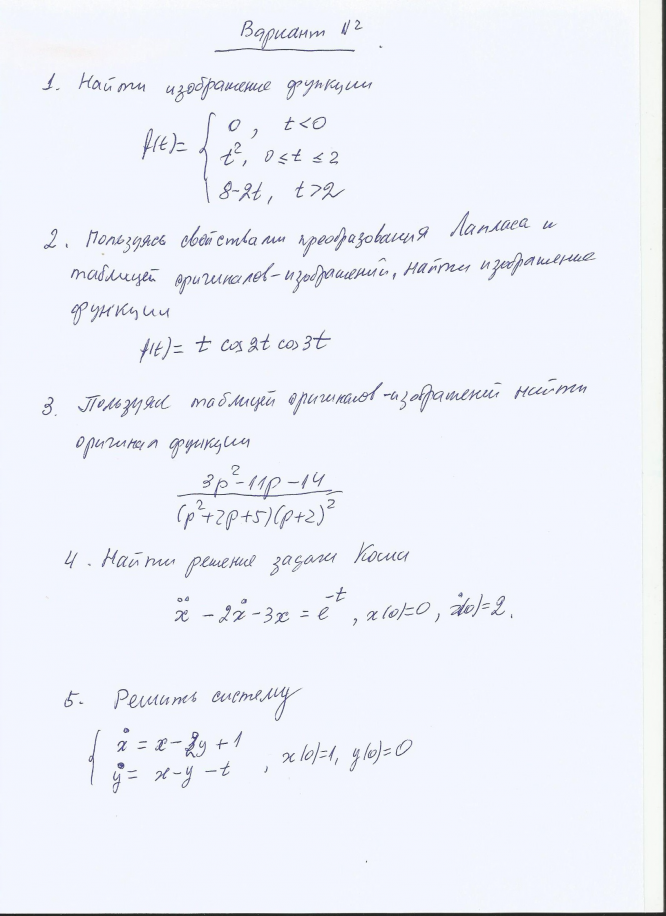 Вариант №2.
1. Найти изображение функции
f(t)= { 0, t<0
t², 0≤t≤2
8-2t, t>2
2. Пользуясь свойствами преобразования Лапласа и
таблицей оригиналов-изображений, найти изображение
функции
f(t)= t cos2t cos3t
3. Пользуяс таблицей оригиналов-изображений найти
оригинал функции
3p²-11p-14
(p²+2p+5)(p+2)²
4. Найти решение задачи Коши
ẍ - 2ẋ - 3x = e^-t, x(0)=0, ẋ(0)=2.
5. Решить систему
{ ẋ = x - y + 1
ẏ = x - y - t , x(0)=1, y(0)=0